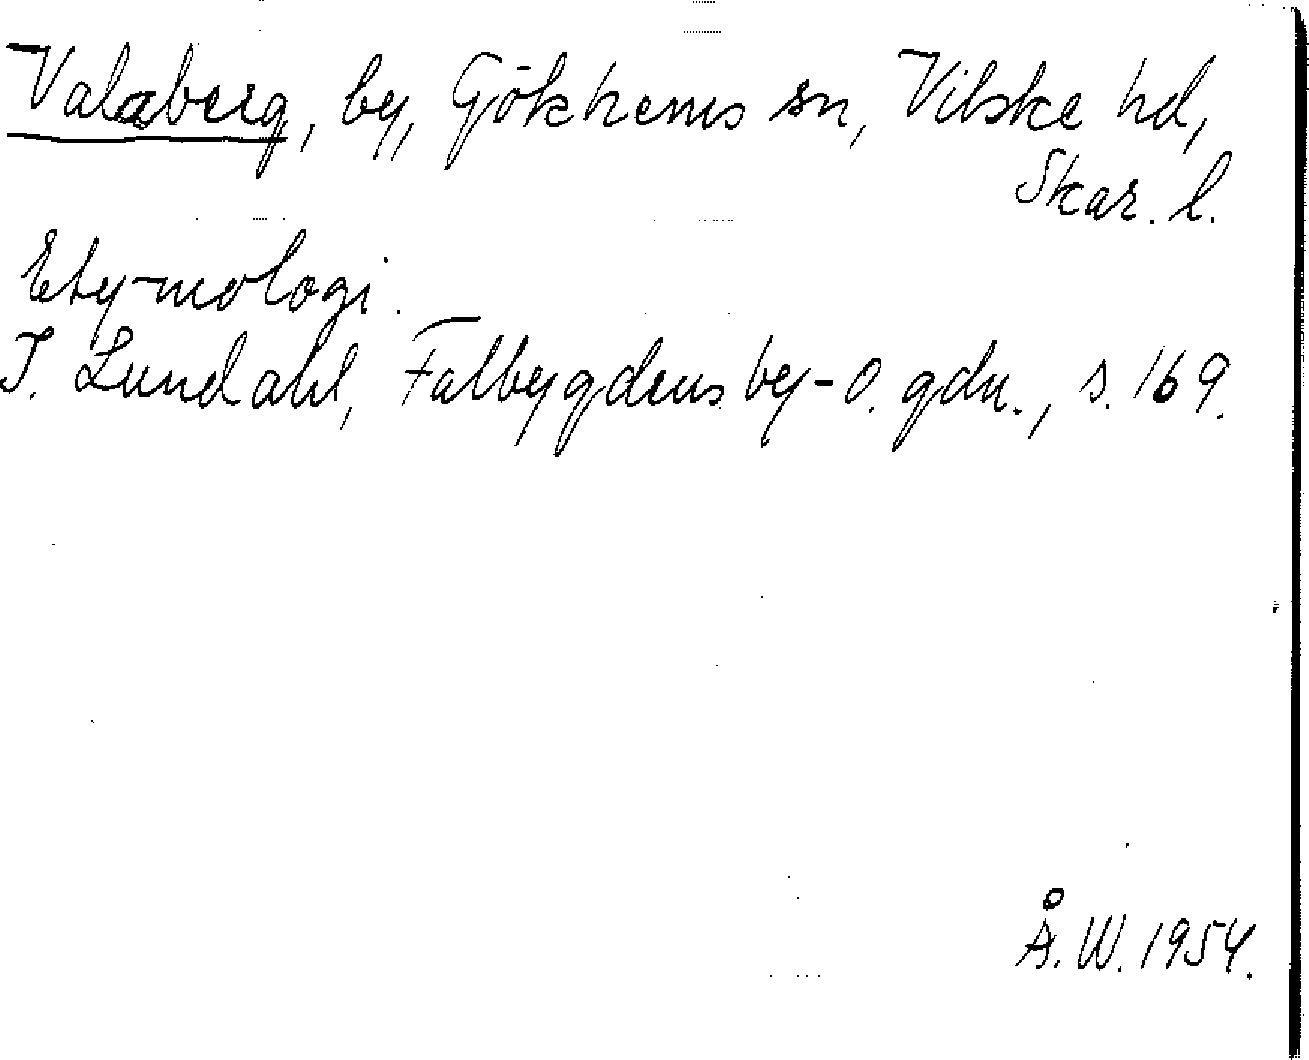 Valaberg, by, Gökhems sn, Vilske hd,
Skar. l.
Etymologi.
I. Lundahl, Falbygdens by- o. gdn., s. 169.
Å. W. 1954.